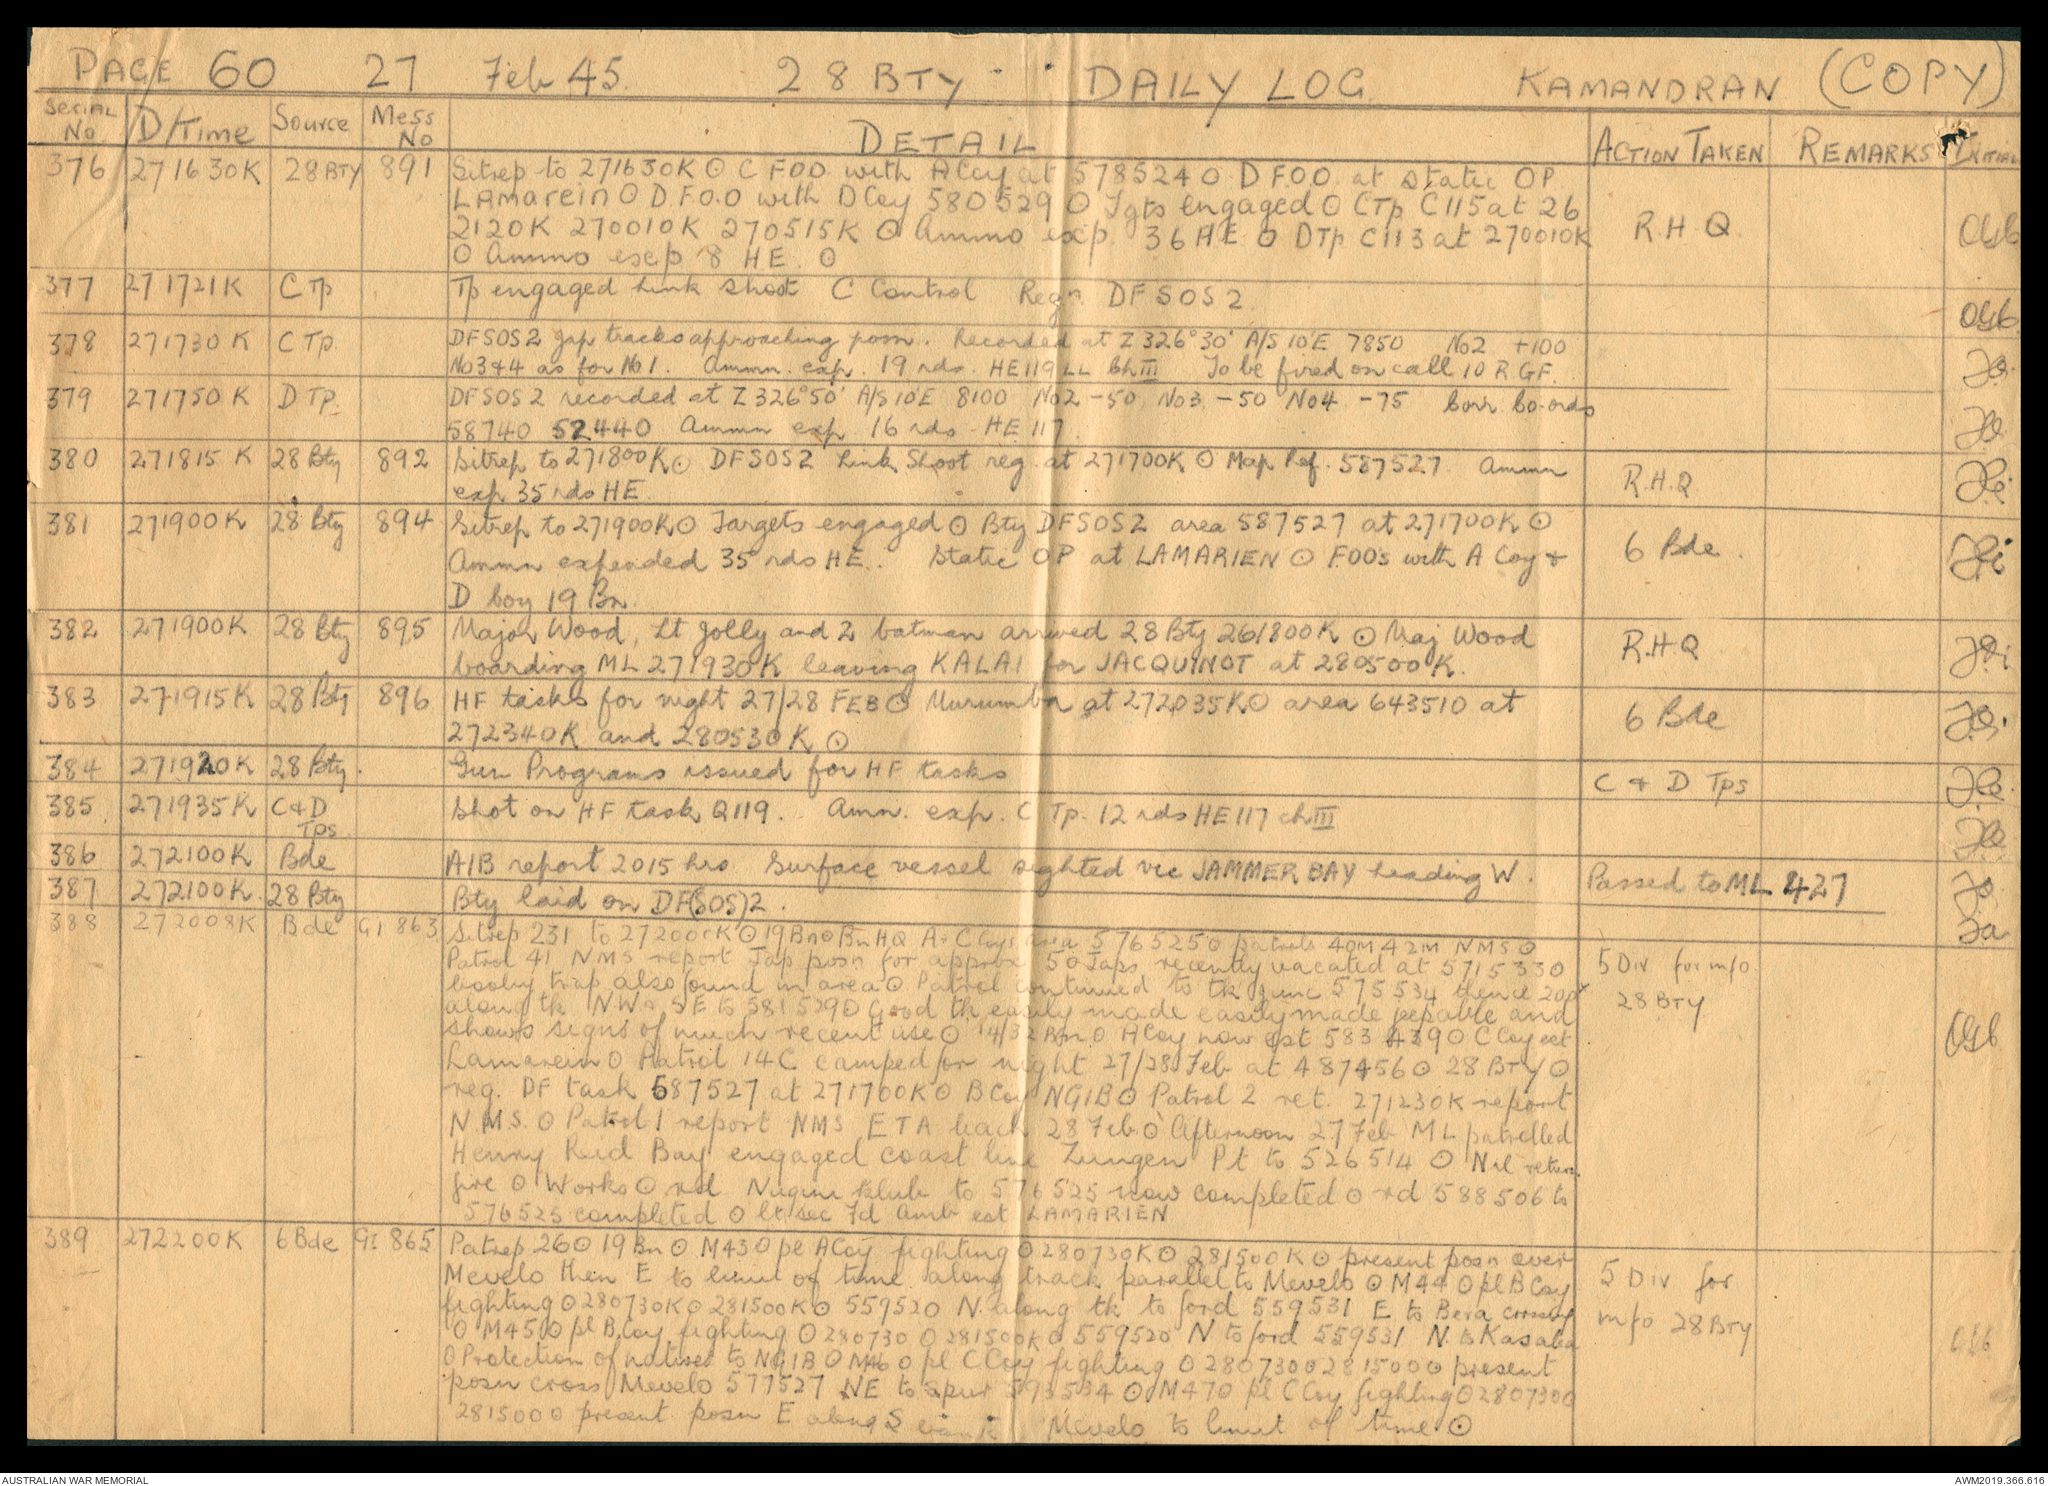 PAGE 60 27 Feb 45. 28 BTY - DAILY LOG KAMANDRAN (COPY)
Serial No D/Time Source Mess No DETAIL ACTION TAKEN REMARKS INITIAL
376 271630K 28 BTY 891 Sitrep to 271630K ⊙ C FOO with A Coy at 578524 ⊙ D FOO at static OP
LAmarein ⊙ D.F.O.O with D Coy 580529 ⊙ Tgts engaged ⊙ C Tp C115 at 26
2120K 270010K 270515K ⊙ Ammo exp 36 HE ⊙ D Tp C113 at 270010K R.H.Q
⊙ Ammo exep 8 HE. ⊙
377 271721K C Tp Tp engaged Link Shoot C Control Regn DFSOS2
378 271730K C Tp. DFSOS2 Jap tracks approaching posn. Recorded at Z 326°30' A/S 10'E 7850 No2 +100
No3&4 as for No1. Ammn. exp. 19 rds. HE119 LL Ch III To be fired on call 10 R GF.
379 271750K D Tp. DFSOS2 recorded at Z 326°50' A/S 10'E 8100 No2 -50 No3 -50 No4 -75 Corr. Co-ords
58740 52440 Ammn exp. 16 rds - HE 117.
380 271815K 28 Bty 892 Sitrep to 271800K ⊙ DFSOS2 Link Shoot reg. at 271700K ⊙ Map Ref. 587527. Ammn
exp 35 rds HE. R.H.Q
381 271900K 28 Bty 894 Sitrep to 271900K ⊙ Targets engaged ⊙ Bty DFSOS2 area 587527 at 271700K ⊙
Ammn expended 35 rds HE.. Static OP at LAMARIEN ⊙ FOOs with A Coy & 6 Bde.
D Coy 19 Bn.
382 271900K 28 Bty 895 Major Wood, Lt Jolly and 2 batman arrived 28 Bty 261800K ⊙ Maj Wood
boarding ML 271930K leaving KALAI for JACQUINOT at 280500K. R.H.Q
383 271915K 28 Bty 896 HF tasks for night 27/28 FEB ⊙ Murumba at 272035K ⊙ area 643510 at
272340K and 280530K ⊙ 6 Bde
384 271920K 28 Bty. Gun Programs issued for HF tasks C & D Tps
385 271935K C & D Tps Shot on HF task Q119. Amn. exp. C Tp. 12 rds HE117 ch III
386 272100K Bde AIB report 2015 hrs Surface vessel sighted vic JAMMER BAY heading W. Passed to ML 427
387 272100K 28 Bty Bty laid on DF(SOS)2.
388 272008K Bde GI 863 Sitrep 231 to 272000K ⊙ 19 Bn ⊙ Bn HQ A & C Coys area 576525 ⊙ patrols 40M 42M NMS ⊙
Patrol 41 NMS report Jap posn for approx 50 Japs recently vacated at 5715330 5 Div for info
booby trap also found in area ⊙ Patrol continued to tk junc 575534 thence 28 BTY
along tk NW & SE to 581529 ⊙ Good tk easily made easily made jeepable and
shows signs of much recent use ⊙ 14/32 Bn ⊙ A Coy now est 583 439 ⊙ C Coy est
Lamarein ⊙ Patrol 14C camped for night 27/28 Feb at 487456 ⊙ 28 BTY ⊙
reg. DF task 587527 at 271700K ⊙ B Coy NGIB ⊙ Patrol 2 ret. 271230K report
N.M.S. ⊙ Patrol 1 report NMS ETA back 28 Feb ⊙ Afternoon 27 Feb ML patrolled
Henry Reid Bay engaged coast line Zungen Pt to 526514 ⊙ Nil return
fire ⊙ Works ⊙ rd to 576525 now completed ⊙ rd 588506 to
576525 completed ⊙ Lt sec Fd Amb est LAMARIEN
389 272200K 6 Bde GI 865 Patrep 26 ⊙ 19 Bn ⊙ M43 ⊙ pl A Coy fighting ⊙ 280730K ⊙ 281500K ⊙ present posn over
Mevelo then E to limit of time along track parallel to Mevelo ⊙ M44 ⊙ pl B Coy 5 Div for
fighting ⊙ 280730K ⊙ 281500K ⊙ 559520 N along tk to ford 559531 E to Bera crossing
⊙ M45 ⊙ pl B Coy fighting ⊙ 280730 ⊙ 281500K ⊙ 559520 N to ford 559531 N to Kasaba info 28 BTY
⊙ Protection of natives to NGIB ⊙ M46 ⊙ pl C Coy fighting ⊙ 280730 ⊙ 281500 ⊙ present
posn cross Mevelo 577527 NE to spur 573534 ⊙ M47 ⊙ pl C Coy fighting ⊙ 280730 ⊙
281500 ⊙ present posn E along S bank Mevelo to limit of time ⊙
AUSTRALIAN WAR MEMORIAL AWM2019.366.616